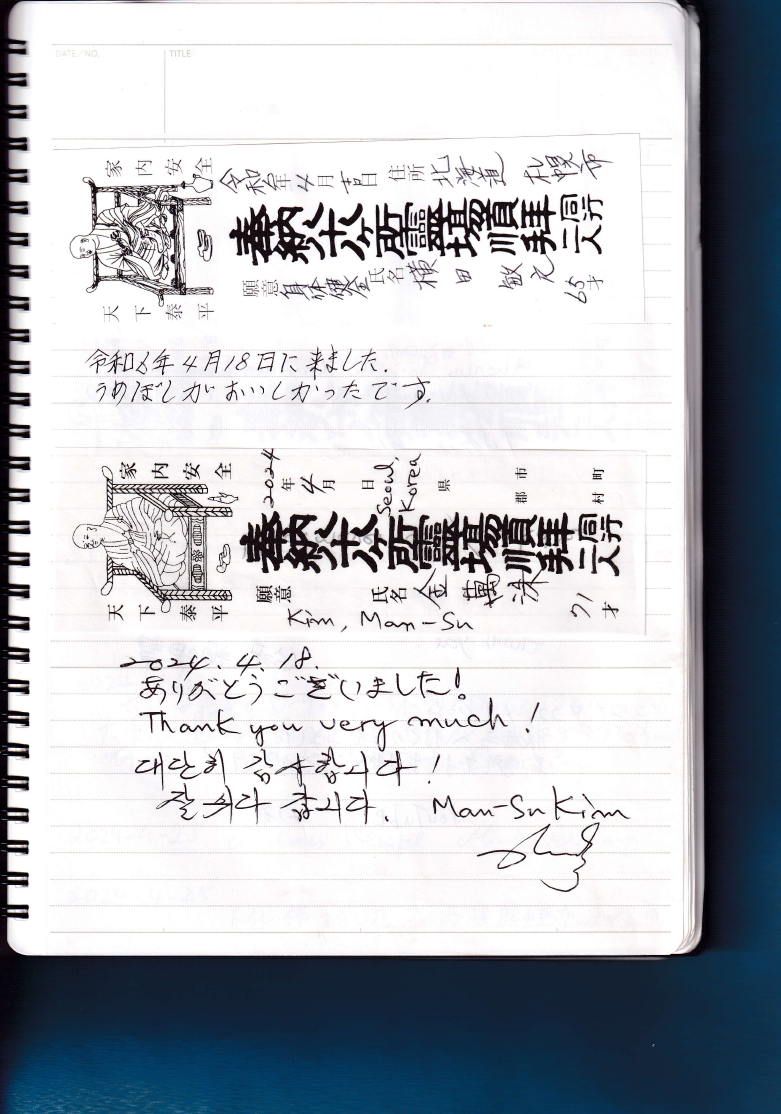 DATE/NO.
TITLE
家内安全
天下泰平
令和6年4月 日 住所 北海道 札幌市
奉納八十八ヶ所霊場順拝 同行二人
願意 身体健全 氏名 横田 敏光 65才
令和6年4月18日に来ました.
うめぼしがおいしかったです.
家内安全
天下泰平
2024年 4月 日 Seoul, Korea 県 郡市 町村
奉納八十八ヶ所霊場順拝 同行二人
願意 氏名 金 萬洙 71才
Kim, Man-Su
2024. 4. 18.
ありがとうございました!
Thank you very much!
대단히 감사합니다!
잘 쉬다 갑니다. Man-Su Kim